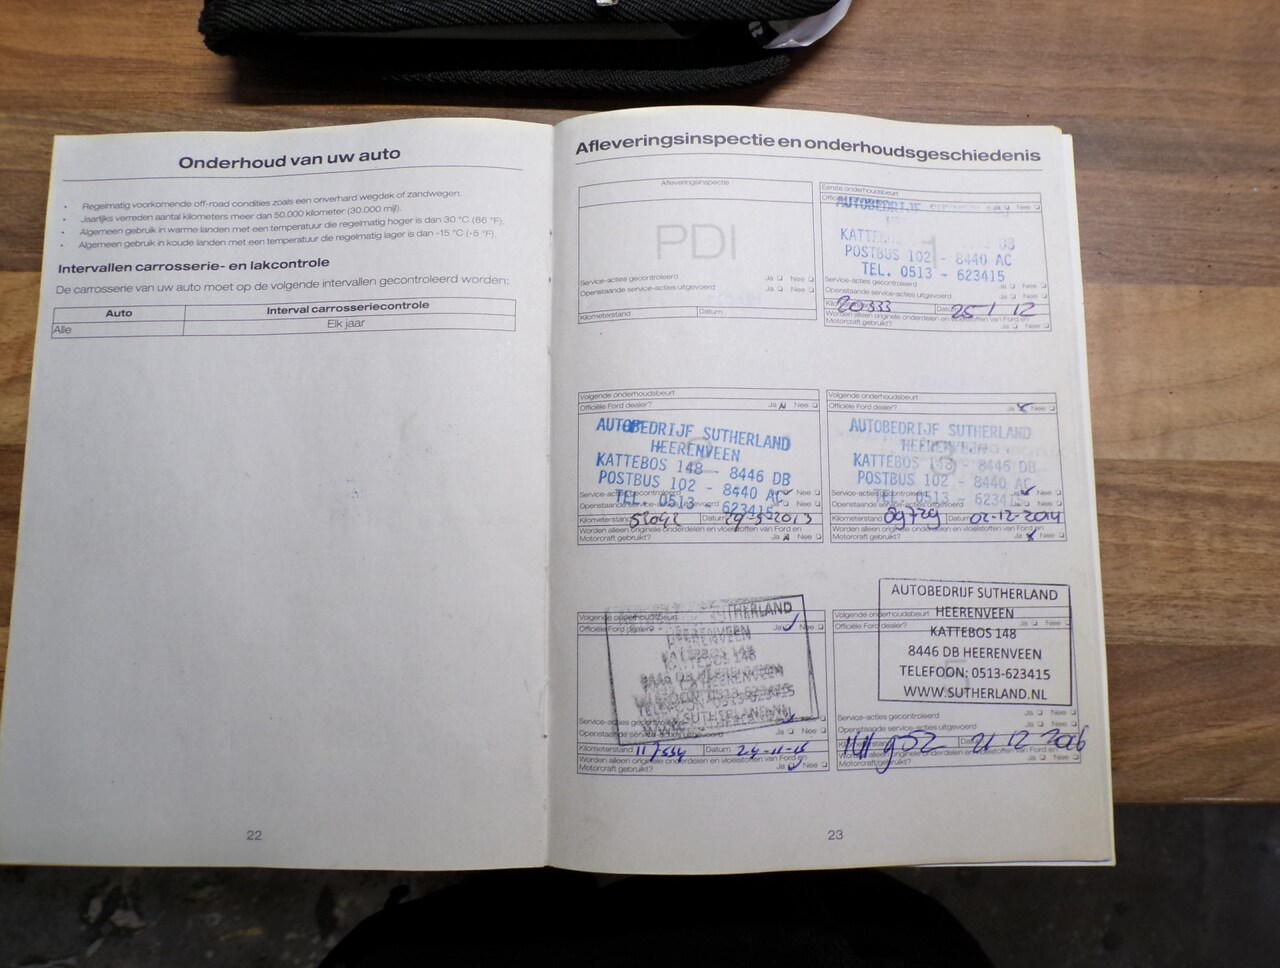 Onderhoud van uw auto
• Regelmatig voorkomende off-road condities zoals een onverhard wegdek of zandwegen.
• Jaarlijks verreden aantal kilometers meer dan 50.000 kilometer (30.000 mijl).
• Algemeen gebruik in warme landen met een temperatuur die regelmatig hoger is dan 30 °C (86 °F).
• Algemeen gebruik in koude landen met een temperatuur die regelmatig lager is dan -15 °C (-5 °F).
Intervallen carrosserie- en lakcontrole
De carrosserie van uw auto moet op de volgende intervallen gecontroleerd worden:
Auto Interval carrosseriecontrole
Alle Elk jaar
22
Afleveringsinspectie en onderhoudsgeschiedenis
Afleveringsinspectie
PDI
Service-acties gecontroleerd Ja Nee
Openstaande service-acties uitgevoerd Ja Nee
Kilometerstand Datum
Eerste onderhoudsbeurt
Ja Nee
AUTOBEDRIJF
1
POSTBUS 102 - 8440 AC
TEL. 0513 - 623415
Service-acties gecontroleerd Ja Nee
Openstaande service-acties uitgevoerd Ja Nee
20333 25 1 12
Worden alleen originele onderdelen en vloeistoffen van Ford en
Motorcraft gebruikt? Ja Nee
Volgende onderhoudsbeurt
Officiële Ford dealer? Ja Nee
AUTOBEDRIJF SUTHERLAND
HEERENVEEN
KATTEBOS 148 - 8446 DB
POSTBUS 102 - 8440 AC
TEL. 0513 - 623415
Service-acties gecontroleerd Nee
Openstaande service-acties uitgevoerd Ja Nee
Kilometerstand Datum 29-5-2013
Worden alleen originele onderdelen en vloeistoffen van Ford en
Motorcraft gebruikt? Ja Nee
Volgende onderhoudsbeurt
Officiële Ford dealer? Ja Nee
AUTOBEDRIJF SUTHERLAND
HEERENVEEN
KATTEBOS 148 - 8446 DB
POSTBUS 102 - 8440 AC
TEL. 0513 - 623415
3
Service-acties gecontroleerd Nee
Openstaande service-acties uitgevoerd Ja Nee
Kilometerstand 89729 Datum 02-12-2014
Worden alleen originele onderdelen en vloeistoffen van Ford en
Motorcraft gebruikt? Ja Nee
Volgende onderhoudsbeurt
Officiële Ford dealer? Ja Nee
SUTHERLAND
HEERENVEEN
KATTEBOS 148
8446 DB HEERENVEEN
TELEFOON: 0513-623415
WWW.SUTHERLAND.NL
Service-acties gecontroleerd
Openstaande service-acties uitgevoerd Ja Nee
Kilometerstand Datum
Worden alleen originele onderdelen en vloeistoffen van Ford en
Motorcraft gebruikt? Ja Nee
Volgende onderhoudsbeurt
Officiële Ford dealer? Ja Nee
AUTOBEDRIJF SUTHERLAND
HEERENVEEN
KATTEBOS 148
8446 DB HEERENVEEN
TELEFOON: 0513-623415
WWW.SUTHERLAND.NL
5
Service-acties gecontroleerd Ja Nee
Openstaande service-acties uitgevoerd Ja Nee
21 12 2016
Worden alleen originele onderdelen en vloeistoffen van Ford en
Motorcraft gebruikt? Ja Nee
23